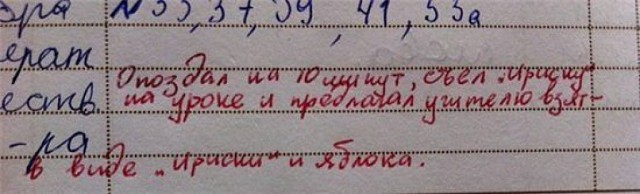 ера №35, 37, 39, 41, 53а
ерат
Опоздал на 10 минут, съел "ириску"
еств. на уроке и предлагал учителю взят-
-ра
в виде "ириски" и яблока.